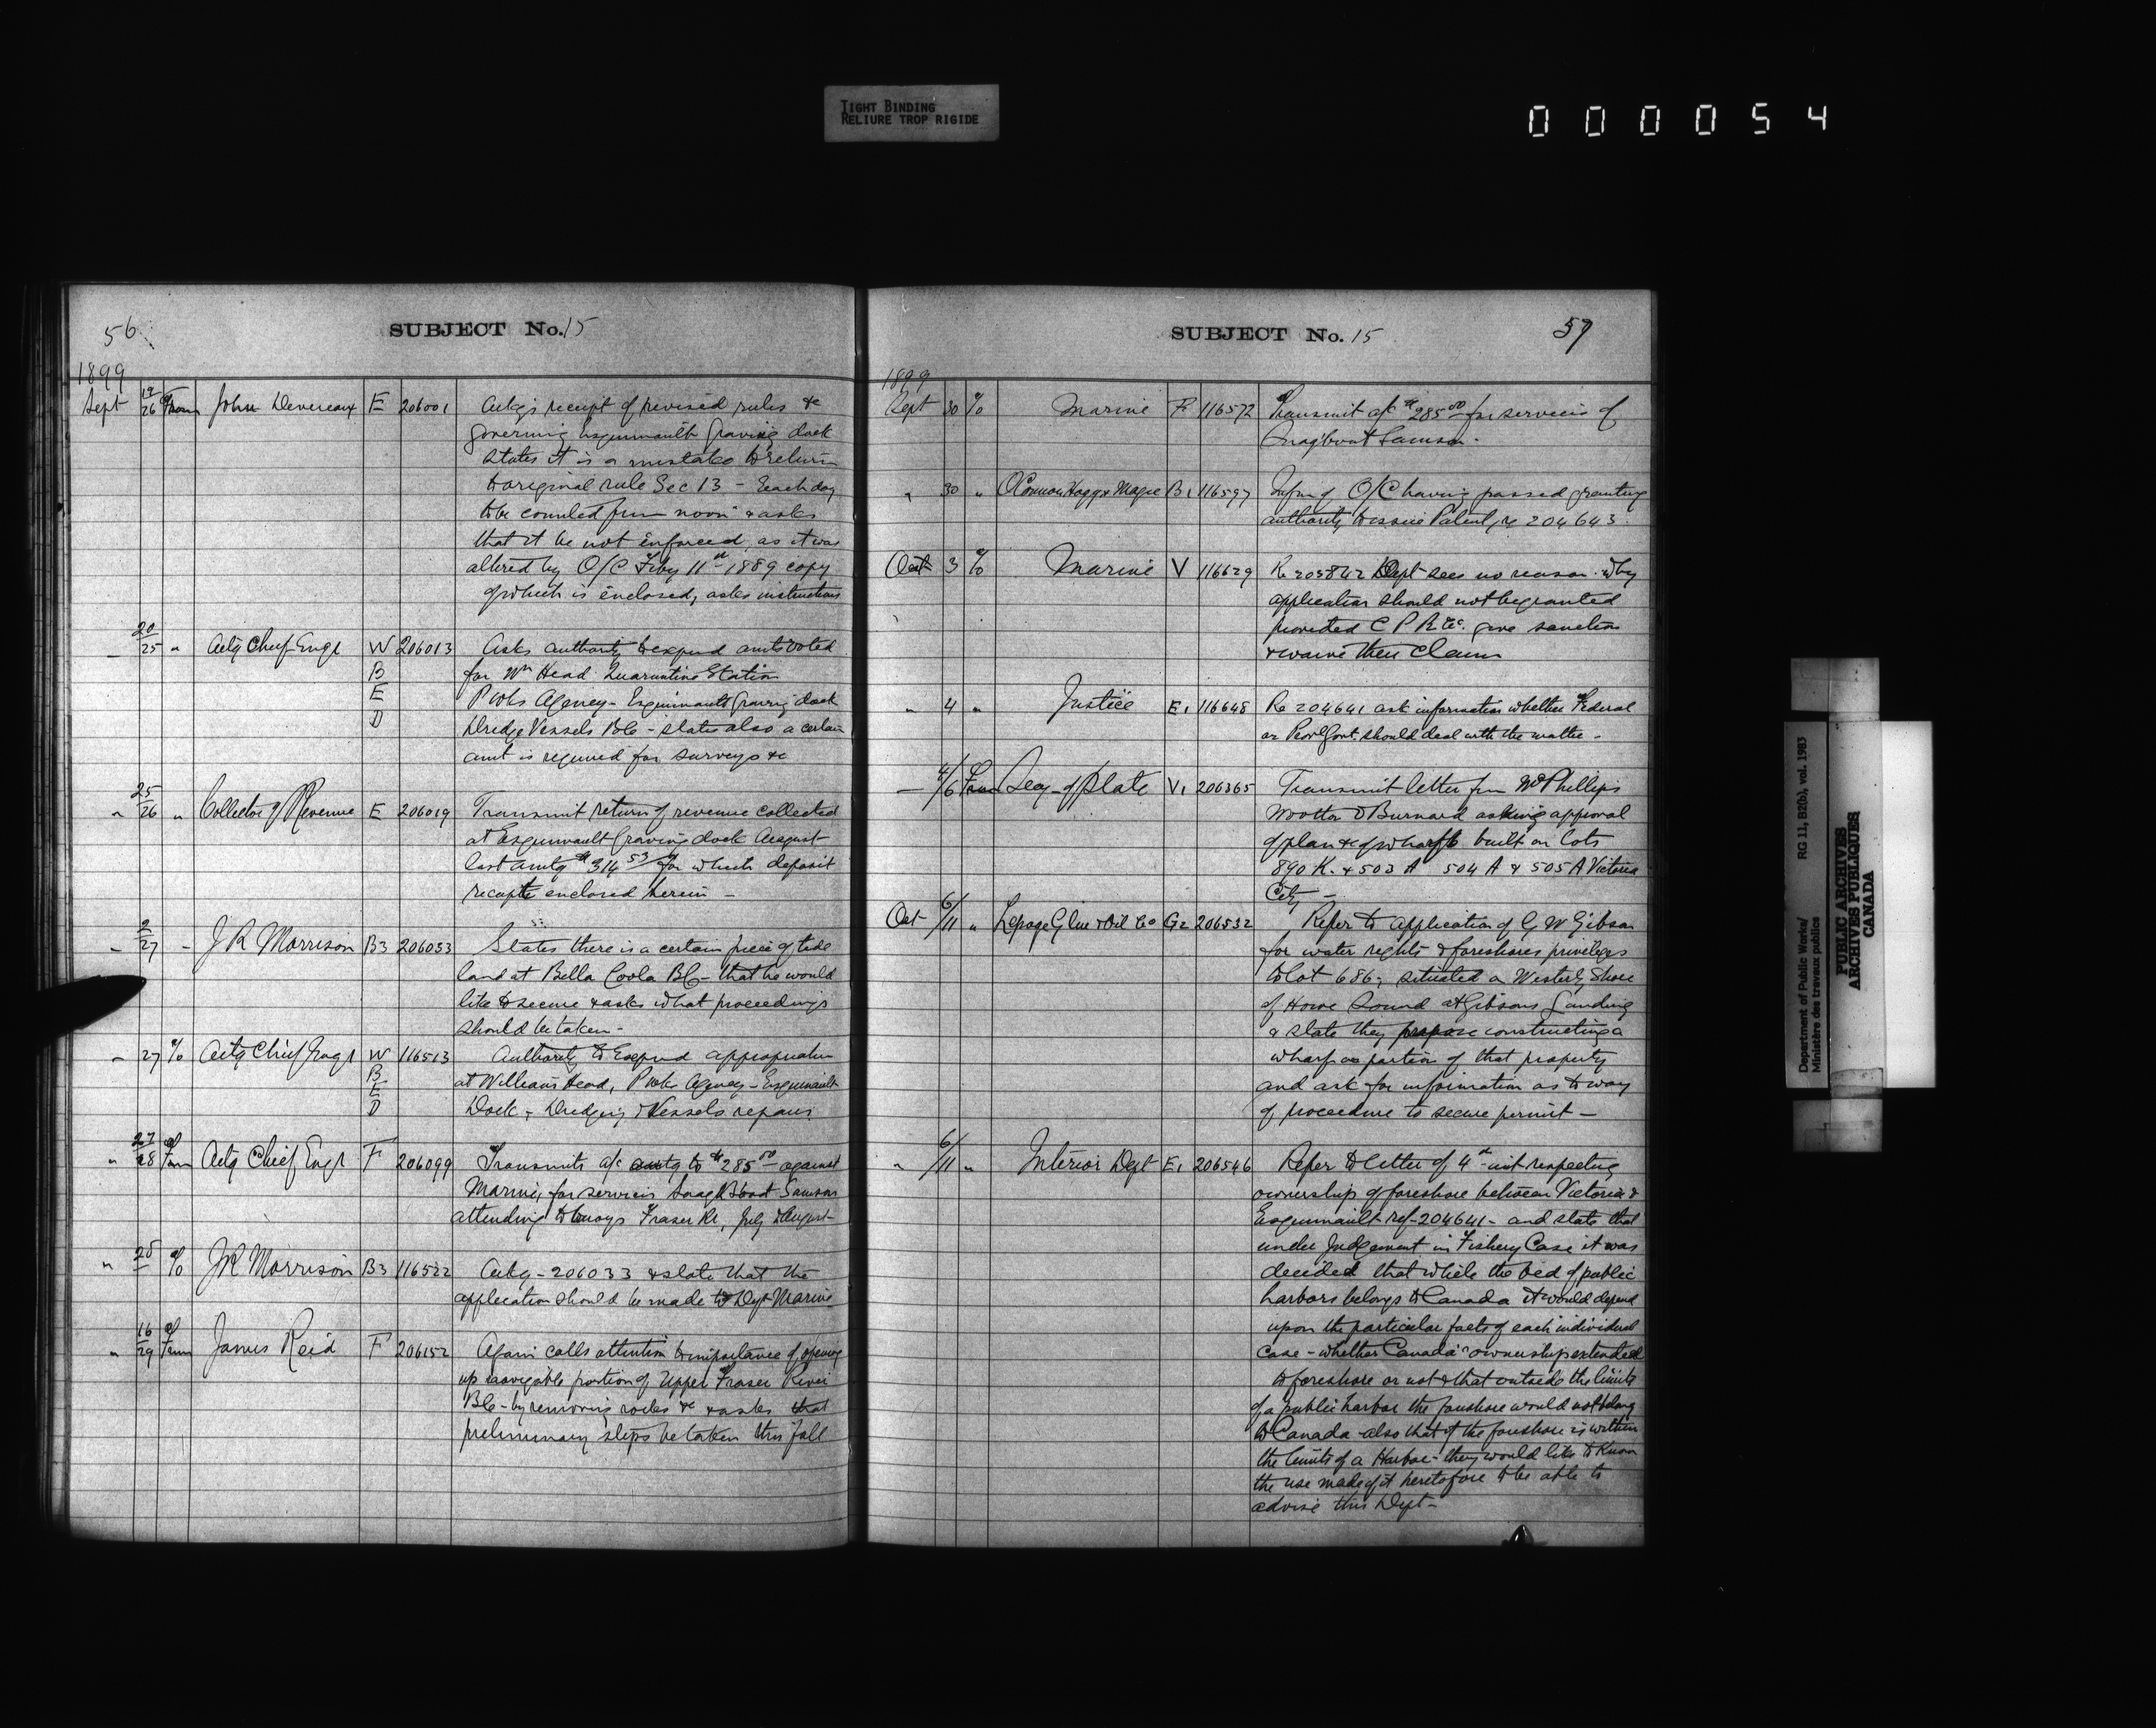 TIGHT BINDING
RELIURE TROP RIGIDE
000054
56
SUBJECT No. 15
1899
Sept 19/26 From John Devereaux E 206001 Ackgs receipt of revised rules &c
governing Esquimault Graving dock
states it is a mistake to return
to original rule Sec 13 - Each day
to be counted from noon & asks
that it be not enforced, as it was
altered by O/C Feby 11th 1889 copy
of which is enclosed, asks instructions
20/25 " Actg Chief Engr W 206013 Asks authority to expend amts voted
B for Wm Head Quarantine Station
E P Wks Agency - Esquimault Graving dock
D Dredge Vessels BC - states also a certain
amt is required for surveys &c
" 25/26 " Collector of Revenue E 206019 Transmit return of revenue collected
at Esquimault Graving dock August
last amtg $314 53/ for which deposit
receipts enclosed herein -
" 2/27 - J R Morrison B3 206033 States there is a certain piece of tide
land at Bella Coola BC - that he would
like to secure & asks what proceedings
should be taken -
" 27 % Actg Chief Engr W 116513 Authority to Expend appropriation
B at Williams Head, P Wks Agency - Esquimault
E Dock, Dredging & Vessels repairs
D
" 27/28 From Actg Chief Engr F 206099 Transmits a/c amtg to $285 00 against
Marine, for services Snag Boat Samson
attending to buoys Fraser R, July & August -
" 28 % JR Morrison B3 116522 Ackg - 206033 & state that the
application should be made to Dept Marine
" 16/29 From James Reid F 206152 Again calls attention to importance of opening
up navigable portion of Upper Fraser River
BC - by removing rocks &c & asks that
preliminary steps be taken this fall
SUBJECT No. 15
57
1899
Sept 30 % Marine F 116572 Transmit a/c $285 00 for services of
Snagboat Samson.
" 30 " O'Connor Hogg & Magee B1 116597 Inform of O/C having passed granting
authority to issue Patent, re 204643
Oct 3 % Marine V 116629 Re 203842 Dept sees no reason why
application should not be granted
provided C P R Co. give sanction
& waive their claim
" 4 " Justice E1 116648 Re 204641 ask information whether Federal
or Provl Govt. should deal with the matter -
- 4/6 From Secy of State V1 206365 Transmit letter from McPhillips
Wootton & Burnard asking approval
of plan &c of wharf to built on lots
890 K. & 503 A 504 A & 505 A Victoria
City -
Oct 6/11 " Lepage Glue & Oil Co G2 206532 Refer to application of G W Gibson
for water rights & foreshores privileges
to lot 686, situated on Westerly Shore
of Howe Sound at Gibsons Landing
& state they propose constructing a
wharf on portion of that property
and ask for information as to way
of proceedure to secure permit -
" 6/11 " Interior Dept E1 206546 Refer to letter of 4th inst respecting
ownership of foreshore between Victoria &
Esquimault ref - 204641 - and state that
under Judgement in Fishery Case it was
decided that while the bed of public
harbors belongs to Canada it would depend
upon the particular facts of each individual
case - whether Canada's ownership extended
to foreshore or not & that outside the limits
of a public harbor the foreshore would not belong
to Canada - also that if the foreshore is within
the limits of a Harbor - they would like to know
the use made of it heretofore to be able to
advise this Dept -
Department of Public Works/
Ministère des travaux publics
RG 11, B2(b), vol. 1983
PUBLIC ARCHIVES
ARCHIVES PUBLIQUES
CANADA